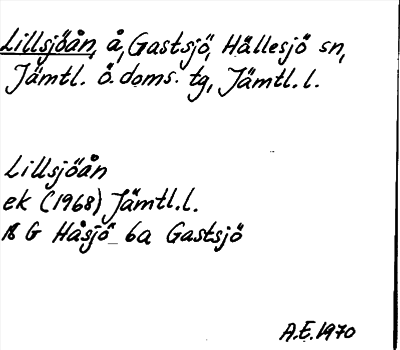 Lillsjöån, å, Gastsjö, Hällesjö sn,
Jämtl. ö. doms. tg, Jämtl. l.
Lillsjöån
ek (1968) Jämtl. l.
18 G Håsjö 6a Gastsjö
A.E. 1970